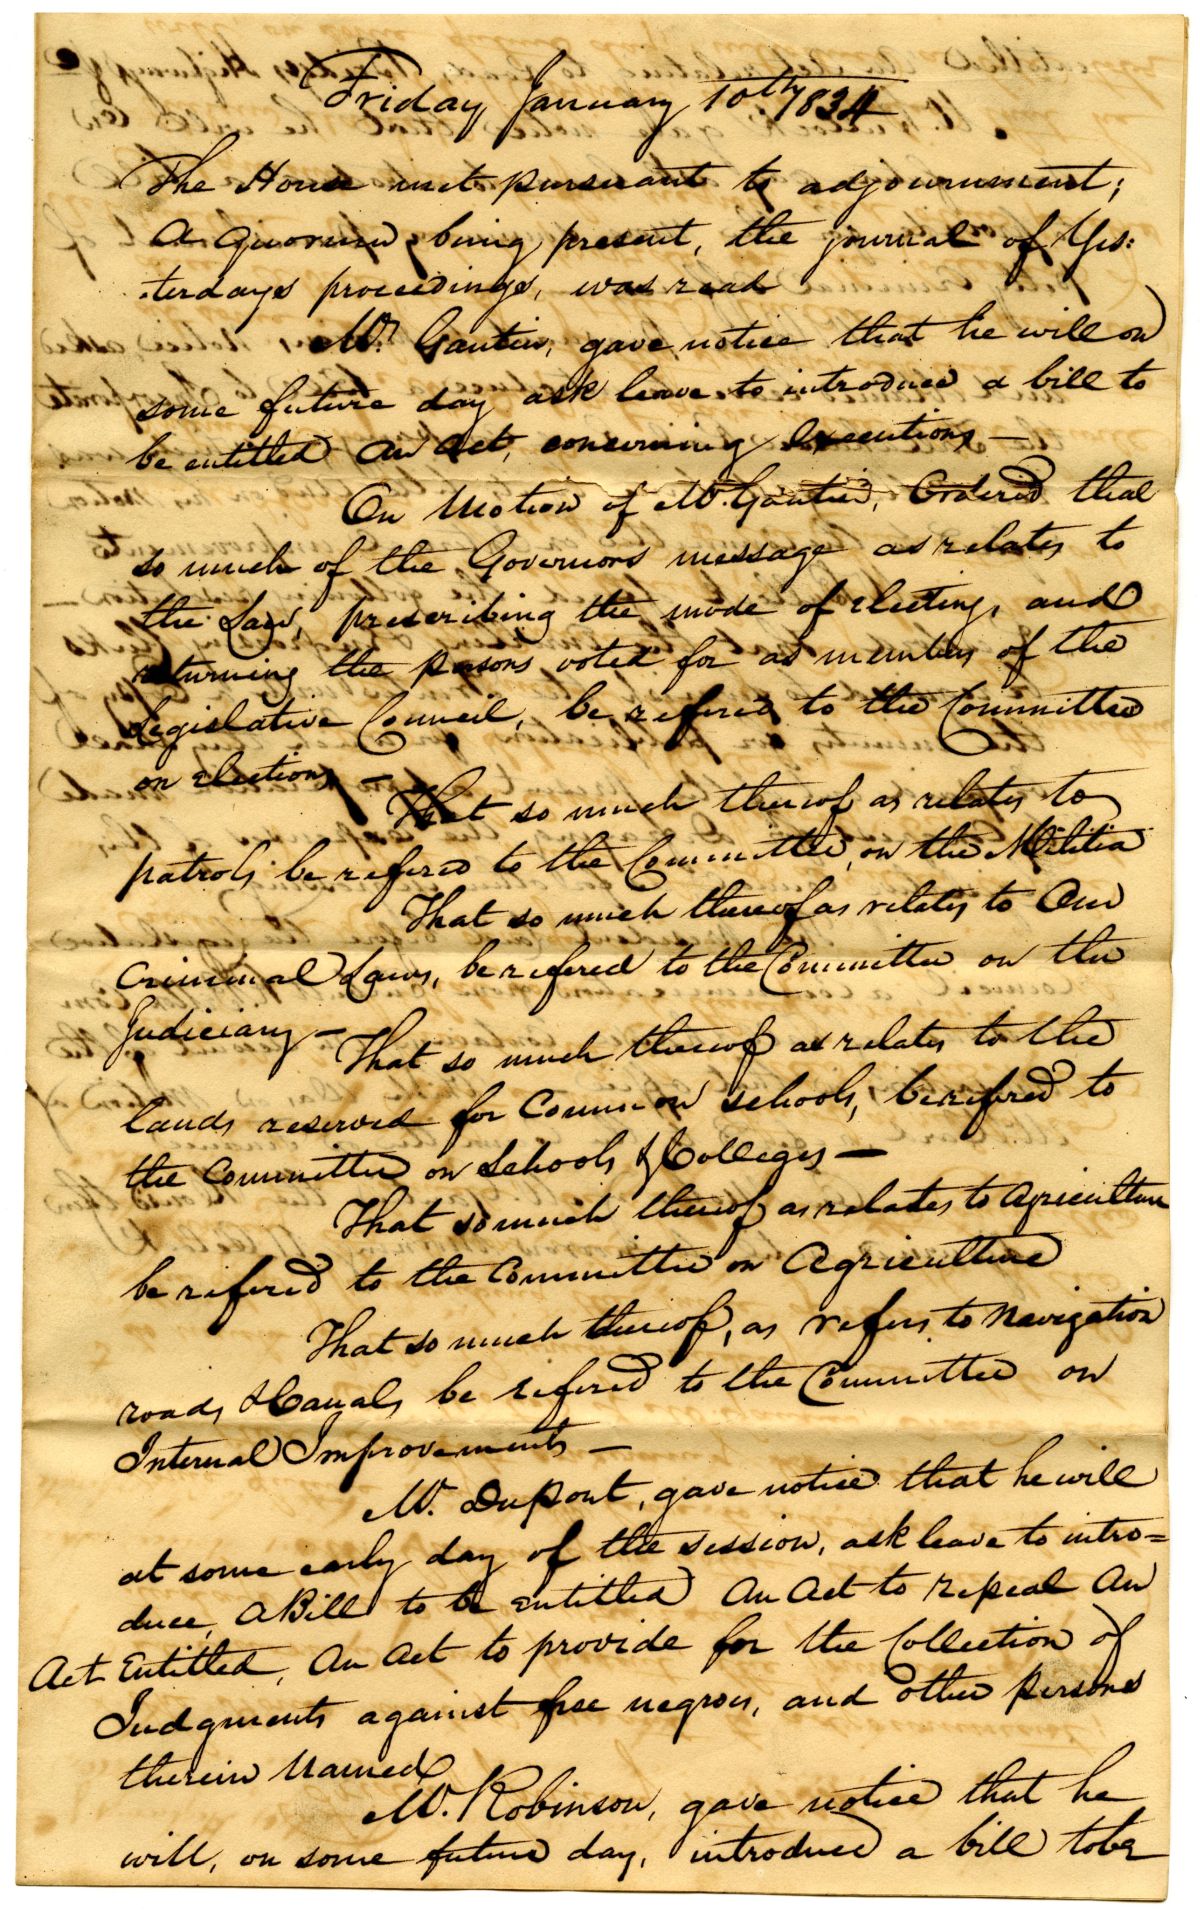 Friday January 10th 1834
The House met pursuant to adjournment;
a quorum being present, the journal of Yes:
:terdays proceedings, was read
Mr. Gautier, gave notice that he will on
some future day ask leave to introduce a bill to
be entitled an act, concerning executions —
On Motion of Mr. Gautier, Ordered that
so much of the Governors message as relates to
the Law, prescribing the mode of electing, and
returning the persons voted for as members of the
Legislative Council, be refered to the Committee
on elections —
That so much thereof as relates to
patrols be refered to the Committee, on the Militia
That so much thereof as relates to Our
Criminal Laws, be refered to the Committee on the
Judiciary —
That so much thereof as relates to the
lands reserved for Common schools, be refered to
the Committee on Schools & Colleges —
That so much thereof as relates to Agriculture
be refered to the Committee on Agriculture
That so much thereof, as refers to Navigation
roads & Canals be refered to the Committee on
Internal Improvements —
Mr. DuPont, gave notice that he will
at some early day of the session, ask leave to intro=
duce, a Bill to be entitled An Act to repeal An
Act Entitled, An Act to provide for the Collection of
Judgments against free negroes, and other persons
therein Named
Mr. Robinson, gave notice that he
will, on some future day, introduce a bill to be